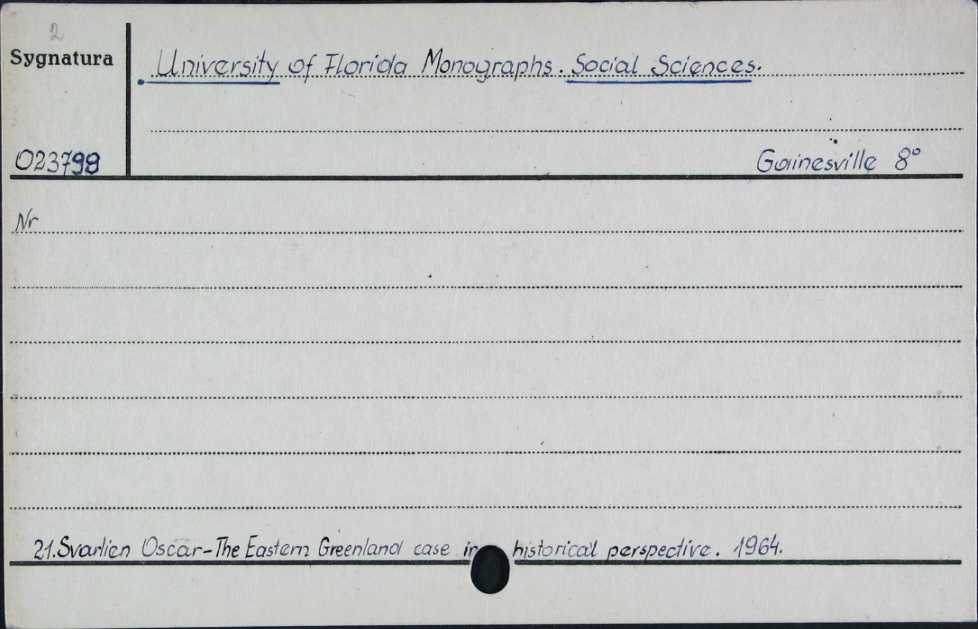 2
Sygnatura
University of Florida Monographs. Social Sciences.
023798
Gainesville 8°
Nr
21. Svarlien Oscar - The Eastern Greenland case in historical perspective. 1964.